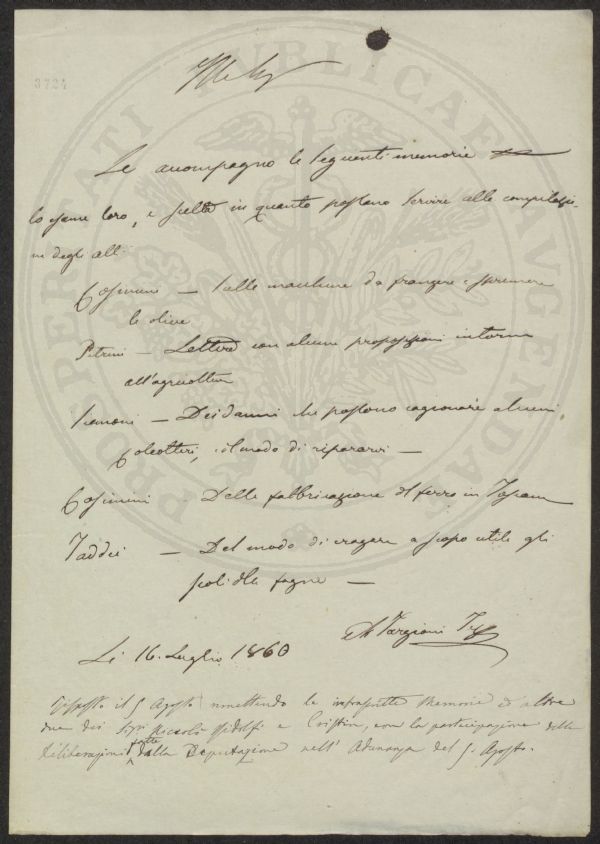 3724
Le accompagno le seguenti memorie
lo esame loro, e scelta in quanto possano servire alla compilazio-
ne degli atti
Cosimini — Sulle macchine da frangere e spremere
le olive
Petrini — Lettera con alcune proposizioni intorno
all'agricoltura
— Dei danni che possono cagionare alcuni
Coleotteri, e il modo di ripararvi —
Cosimini — Della fabbricazione del ferro in Toscana
Taddei — Del modo di erogare a scopo utile gli
scoli delle fogne —
A Targioni Tzz
Li 16. Luglio 1860
Risposto il 5 Agosto rimettendo le infrascritte Memorie ed altre
due dei Sigri Niccolò Ridolfi e Cristin, con la partecipazione delle
deliberazioni prese dalla Deputazione nell' Adunanza del 5. Agosto.
PROSPERITATI PUBLICAE AUGENDAE